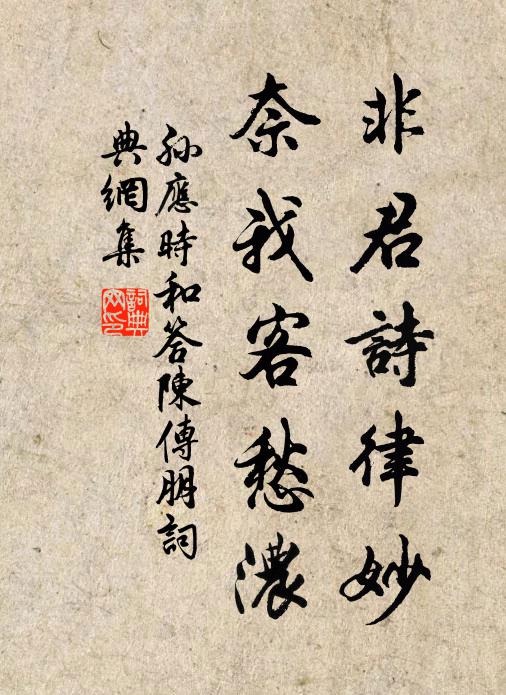 非君詩律妙
奈我客愁濃
孫應時和答陳傅朋詞
典網集
詞典網印